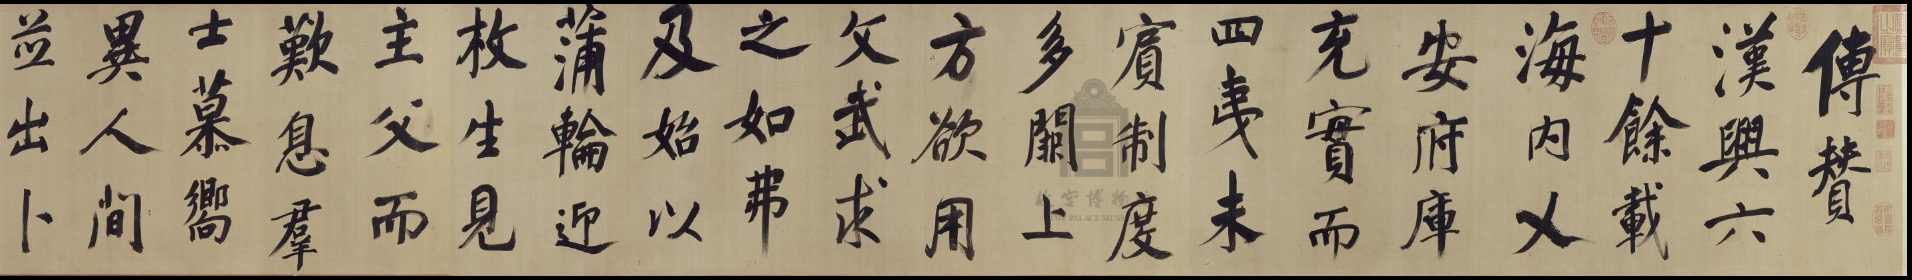 傳賛
漢興六
十餘載
海内乂
安府庫
充實而
四夷未
賓制度
多闕上
方欲用
文武求
之如弗
及始以
蒲輪迎
枚生見
主父而
歎息羣
士慕嚮
異人間
並出卜
故宫博物院
THE PALACE MUSEUM